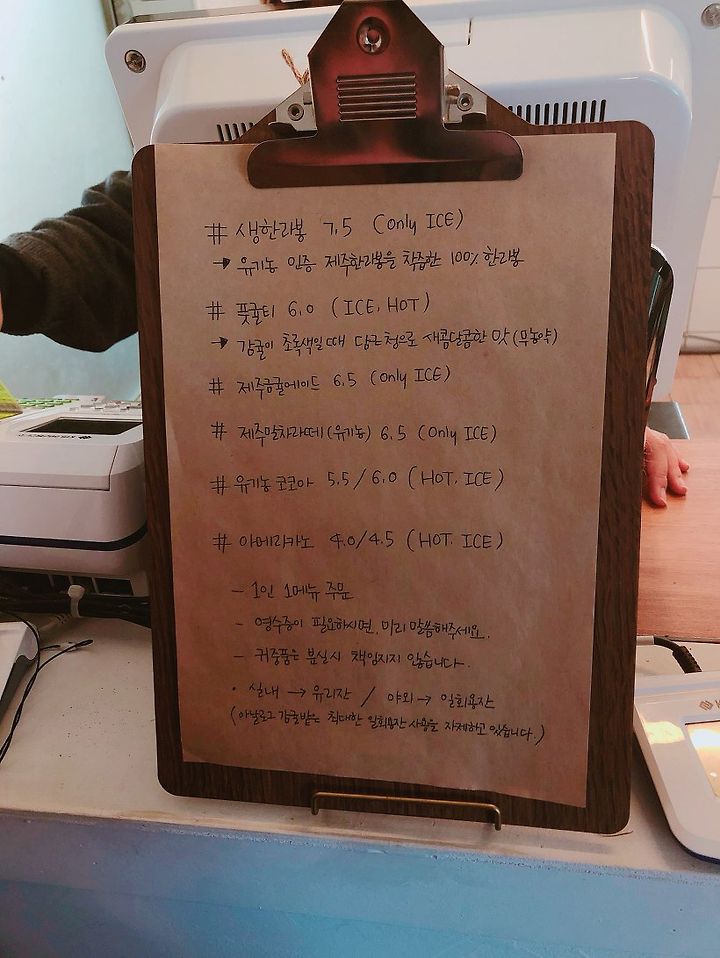 # 생한라봉 7.5 (Only ICE)
→ 유기농 인증 제주한라봉을 착즙한 100% 한라봉
# 풋귤티 6.0 (ICE, HOT)
→ 감귤이 초록색일때 담근 청으로 새콤달콤한 맛 (무농약)
# 제주금귤에이드 6.5 (Only ICE)
# 제주말차라떼(유기농) 6.5 (Only ICE)
# 유기농 코코아 5.5/6.0 (HOT, ICE)
# 아메리카노 4.0/4.5 (HOT. ICE)
- 1인 1메뉴 주문
- 영수증이 필요하시면, 미리 말씀해주세요.
- 귀중품은 분실시 책임지지 않습니다.
• 실내 → 유리잔 / 야외 → 일회용잔
(아날로그 감귤밭은 최대한 일회용잔 사용을 자제하고 있습니다.)